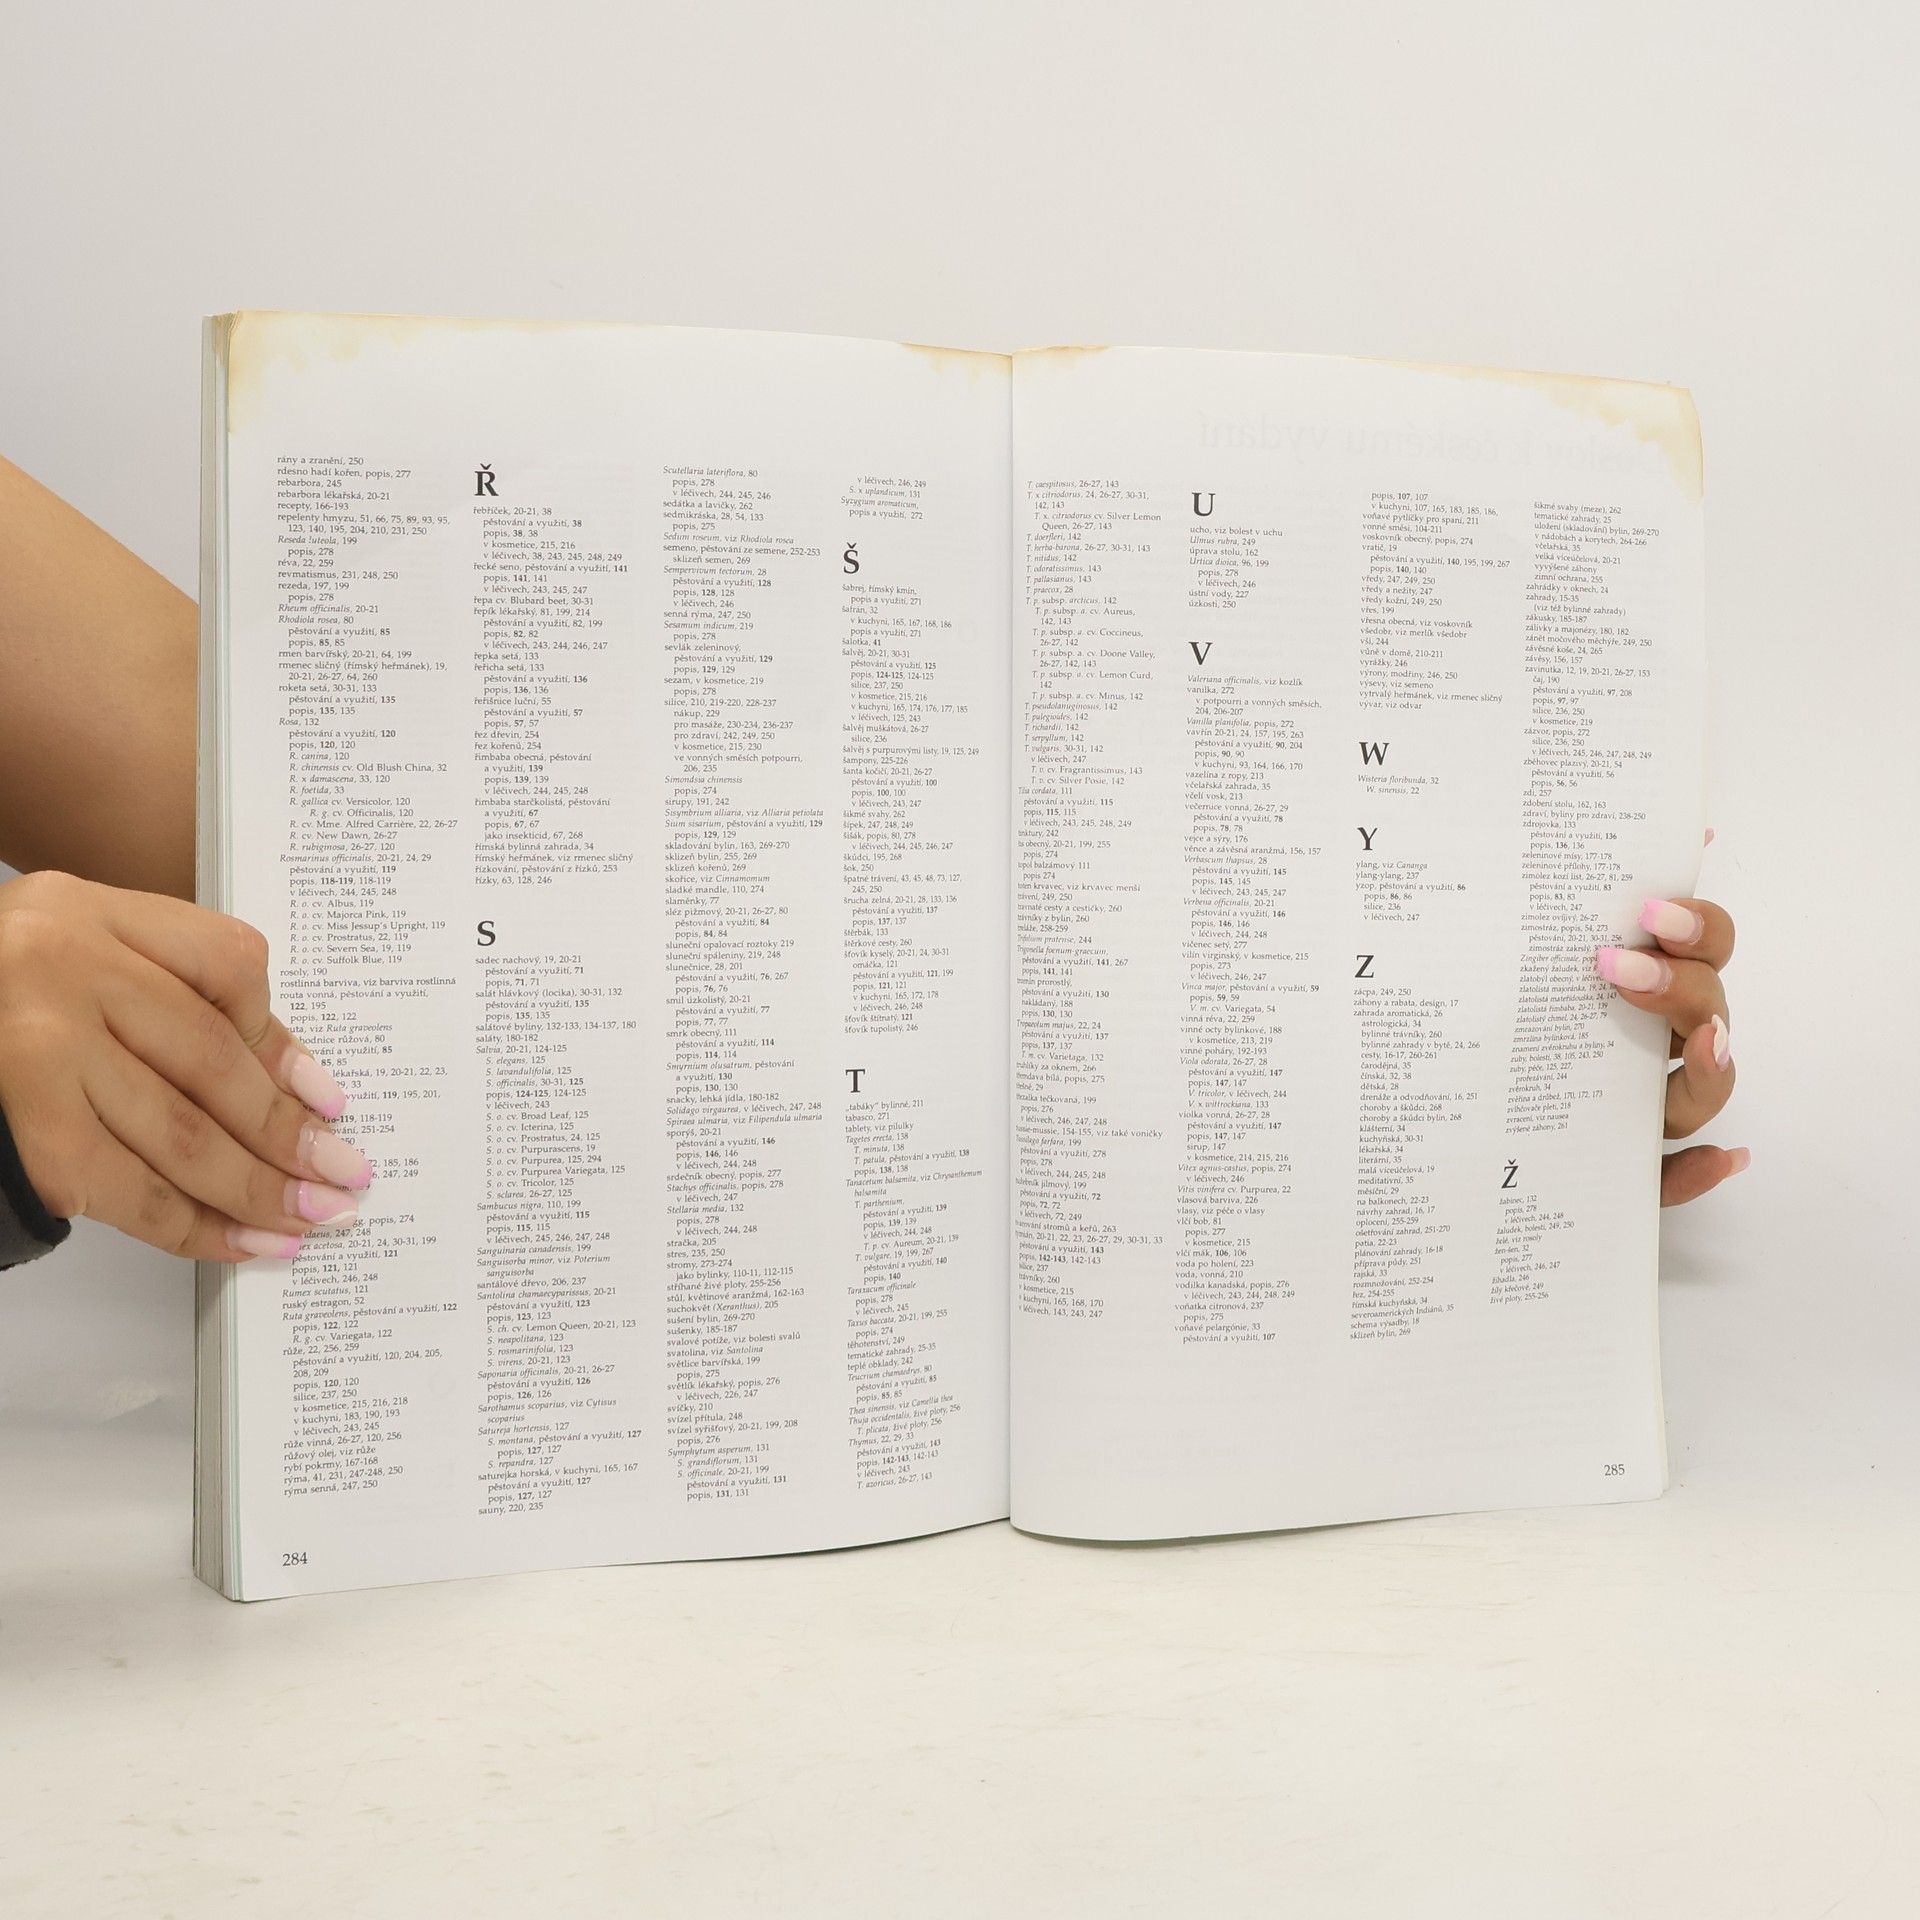 rány a zranění, 250
rdesno hadí kořen, popis, 277
rebarbora, 245
rebarbora lékařská, 20-21
recepty, 166-193
repelenty hmyzu, 51, 66, 75, 89, 93, 95,
123, 140, 195, 204, 210, 231, 250
Reseda luteola, 199
popis, 278
réva, 22, 259
revmatismus, 231, 248, 250
rezeda, 197, 199
popis, 278
Rheum officinalis, 20-21
Rhodiola rosea, 80
pěstování a využití, 85
popis, 85, 85
rmen barvířský, 20-21, 64, 199
rmenec sličný (římský heřmánek), 19,
20-21, 26-27, 64, 260
roketa setá, 30-31, 133
pěstování a využití, 135
popis, 135, 135
Rosa, 132
pěstování a využití, 120
popis, 120, 120
R. canina, 120
R. chinensis cv. Old Blush China, 32
R. x damascena, 33, 120
R. foetida, 33
R. gallica cv. Versicolor, 120
R. g. cv. Officinalis, 120
R. cv. Mme. Alfred Carrière, 22, 26-27
R. cv. New Dawn, 26-27
R. rubiginosa, 26-27, 120
Rosmarinus officinalis, 20-21, 24, 29
pěstování a využití, 119
popis, 118-119, 118-119
v léčivech, 244, 245, 248
R. o. cv. Albus, 119
R. o. cv. Majorca Pink, 119
R. o. cv. Miss Jessup's Upright, 119
R. o. cv. Prostratus, 22, 119
R. o. cv. Severn Sea, 19, 119
R. o. cv. Suffolk Blue, 119
rosoly, 190
rostlinná barviva, viz barviva rostlinná
routa vonná, pěstování a využití,
122, 195
popis, 122, 122
viz Ruta graveolens
růžová, 80
a využití, 85
85, 85
lékařská, 19, 20-21, 22, 23,
33
využití, 119, 195, 201,
118-119
251-254
185, 186
247, 249
popis, 274
247, 248
acetosa, 20-21, 24, 30-31, 199
pěstování a využití, 121
popis, 121, 121
v léčivech, 246, 248
Rumex scutatus, 121
ruský estragon, 52
Ruta graveolens, pěstování a využití, 122
popis, 122, 122
R. g. cv. Variegata, 122
růže, 22, 256, 259
pěstování a využití, 120, 204, 205,
208, 209
popis, 120, 120
silice, 237, 250
v kosmetice, 215, 216, 218
v kuchyni, 183, 190, 193
v léčivech, 243, 245
růže vinná, 26-27, 120, 256
růžový olej, viz růže
rybí pokrmy, 167-168
rýma, 41, 231, 247-248, 250
rýma senná, 247, 250
284
Ř
řebříček, 20-21, 38
pěstování a využití, 38
popis, 38, 38
v kosmetice, 215, 216
v léčivech, 38, 243, 245, 248, 249
řecké seno, pěstování a využití, 141
popis, 141, 141
v léčivech, 243, 245, 247
řepa cv. Blubard beet, 30-31
řepík lékařský, 81, 199, 214
pěstování a využití, 82, 199
popis, 82, 82
v léčivech, 243, 244, 246, 247
řepka setá, 133
řeřicha setá, 133
pěstování a využití, 136
popis, 136, 136
řeřišnice luční, 55
pěstování a využití, 57
popis, 57, 57
řez dřevin, 254
řez kořenů, 254
řimbaba obecná, pěstování
a využití, 139
popis, 139, 139
v léčivech, 244, 245, 248
řimbaba starčkolistá, pěstování
a využití, 67
popis, 67, 67
jako insekticid, 67, 268
římská bylinná zahrada, 34
římský heřmánek, viz rmenec sličný
řízkování, pěstování z řízků, 253
řízky, 63, 128, 246
S
sadec nachový, 19, 20-21
pěstování a využití, 71
popis, 71, 71
salát hlávkový (locika), 30-31, 132
pěstování a využití, 135
popis, 135, 135
salátové byliny, 132-133, 134-137, 180
saláty, 180-182
Salvia, 20-21, 124-125
S. elegans, 125
S. lavandulifolia, 125
S. officinalis, 30-31, 125
popis, 124-125, 124-125
v léčivech, 243
S. o. cv. Broad Leaf, 125
S. o. cv. Icterina, 125
S. o. cv. Prostratus, 24, 125
S. o. cv. Purpurascens, 19
S. o. cv. Purpurea, 125, 294
S. o. cv. Purpurea Variegata, 125
S. o. cv. Tricolor, 125
S. sclarea, 26-27, 125
Sambucus nigra, 110, 199
pěstování a využití, 115
popis, 115, 115
v léčivech, 245, 246, 247, 248
Sanguinaria canadensis, 199
Sanguisorba minor, viz Poterium
sanguisorba
santálové dřevo, 206, 237
Santolina chamaecyparissus, 20-21
pěstování a využití, 123
popis, 123, 123
S. ch. cv. Lemon Queen, 20-21, 123
S. neapolitana, 123
S. rosmarinifolia, 123
S. virens, 20-21, 123
Saponaria officinalis, 20-21, 26-27
pěstování a využití, 126
popis, 126, 126
Sarothamus scoparius, viz Cytisus
scoparius
Satureja hortensis, 127
S. montana, pěstování a využití, 127
popis, 127, 127
S. repandra, 127
saturejka horská, v kuchyni, 165, 167
pěstování a využití, 127
popis, 127, 127
sauny, 220, 235
Scutellaria lateriflora, 80
popis, 278
v léčivech, 244, 245, 246
sedátka a lavičky, 262
sedmikráska, 28, 54, 133
popis, 275
Sedum roseum, viz Rhodiola rosea
semeno, pěstování ze semene, 252-253
sklizeň semen, 269
Sempervivum tectorum, 28
pěstování a využití, 128
popis, 128, 128
v léčivech, 246
senná rýma, 247, 250
Sesamum indicum, 219
popis, 278
sevlák zeleninový,
pěstování a využití, 129
popis, 129, 129
sezam, v kosmetice, 219
popis, 278
silice, 210, 219-220, 228-237
nákup, 229
pro masáže, 230-234, 236-237
pro zdraví, 242, 249, 250
v kosmetice, 215, 230
ve vonných směsích potpourri,
206, 235
Simondsia chinensis
popis, 274
sirupy, 191, 242
Sisymbrium alliaria, viz Alliaria petiolata
Sium sisarium, pěstování a využití, 129
popis, 129, 129
skladování bylin, 163, 269-270
sklizeň bylin, 255, 269
sklizeň kořenů, 269
skořice, viz Cinnamomum
sladké mandle, 110, 274
slaměnky, 77
sléz pižmový, 20-21, 26-27, 80
pěstování a využití, 84
popis, 84, 84
sluneční opalovací roztoky 219
sluneční spáleniny, 219, 248
slunečnice, 28, 201
pěstování a využití, 76, 267
popis, 76, 76
smil úzkolistý, 20-21
pěstování a využití, 77
popis, 77, 77
smrk obecný, 111
pěstování a využití, 114
popis, 114, 114
Smyrnium olusatrum, pěstování
a využití, 130
popis, 130, 130
snacky, lehká jídla, 180-182
Solidago virgaurea, v léčivech, 247, 248
Spiraea ulmaria, viz Filipendula ulmaria
sporýš, 20-21
pěstování a využití, 146
popis, 146, 146
v léčivech, 244, 248
srdečník obecný, popis, 277
Stachys officinalis, popis, 278
v léčivech, 247
Stellaria media, 132
popis, 278
v léčivech, 244, 248
stračka, 205
stres, 235, 250
stromy, 273-274
jako bylinky, 110-11, 112-115
stříhané živé ploty, 255-256
stůl, květinové aranžmá, 162-163
suchokvět (Xeranthus), 205
sušení bylin, 269-270
sušenky, 185-187
svalové potíže, viz bolesti svalů
svatolina, viz Santolina
světlice barvířská, 199
popis, 275
světlík lékařský, popis, 276
v léčivech, 226, 247
svíčky, 210
svízel přítula, 248
svízel syřišťový, 20-21, 199, 208
popis, 276
Symphytum asperum, 131
S. grandiflorum, 131
S. officinale, 20-21, 199
pěstování a využití, 131
popis, 131, 131
v léčivech, 246, 249
S. x uplandicum, 131
Syzygium aromaticum,
popis a využití, 272
Š
šabrej, římský kmín,
popis a využití, 271
šafrán, 32
v kuchyni, 165, 167, 168, 186
popis a využití, 271
šalotka, 41
šalvěj, 20-21, 30-31
pěstování a využití, 125
popis, 124-125, 124-125
silice, 237, 250
v kosmetice, 215, 216
v kuchyni, 165, 174, 176, 177, 185
v léčivech, 125, 243
šalvěj muškátová, 26-27
silice, 236
šalvěj s purpurovými listy, 19, 125, 249
šampony, 225-226
šanta kočičí, 20-21, 26-27
pěstování a využití, 100
popis, 100, 100
v léčivech, 243, 247
šikmé svahy, 262
šípek, 247, 248, 249
šišák, popis, 80, 278
v léčivech, 244, 245, 246, 247
škůdci, 195, 268
šok, 250
špatné trávení, 43, 45, 48, 73, 127,
245, 250
šrucha zelná, 20-21, 28, 133, 136
pěstování a využití, 137
popis, 137, 137
štěrbák, 133
štěrkové cesty, 260
šťovík kyselý, 20-21, 24, 30-31
omáčka, 121
pěstování a využití, 121, 199
popis, 121, 121
v kuchyni, 165, 172, 178
v léčivech, 246, 248
šťovík štítnatý, 121
šťovík tupolistý, 246
T
„tabáky" bylinné, 211
tabasco, 271
tablety, viz pilulky
Tagetes erecta, 138
T. minuta, 138
T. patula, pěstování a využití, 138
popis, 138, 138
Tanacetum balsamita, viz Chrysanthemum
balsamita
T. parthenium,
pěstování a využití, 139
popis, 139, 139
v léčivech, 244, 248
T. p. cv. Aureum, 20-21, 139
T. vulgare, 19, 199, 267
pěstování a využití, 140
popis, 140
Taraxacum officinale
popis, 278
v léčivech, 245
Taxus baccata, 20-21, 199, 255
popis, 274
těhotenství, 249
tematické zahrady, 25-35
teplé obklady, 242
Teucrium chamaedrys, 80
pěstování a využití, 85
popis, 85, 85
Thea sinensis, viz Camellia thea
Thuja occidentalis, živé ploty, 256
T. plicata, živé ploty, 256
Thymus, 22, 29, 33
pěstování a využití, 143
popis, 142-143, 142-143
v léčivech, 243
T. azoricus, 26-27, 143
T. caespitosus, 26-27, 143
T. x citriodorus, 24, 26-27, 30-31,
142, 143
T. x. citriodorus cv. Silver Lemon
Queen, 26-27, 143
T. doerfleri, 142
T. herba-barona, 26-27, 30-31, 143
T. nitidus, 142
T. odoratissimus, 143
T. pallasianus, 143
T. praecox, 28
T. p. subsp. arcticus, 142
T. p. subsp. a. cv. Aureus,
142, 143
T. p. subsp. a. cv. Coccineus,
26-27, 142
T. p. subsp. a. cv. Doone Valley,
26-27, 142, 143
T. p. subsp. a. cv. Lemon Curd,
142
T. p. subsp. a. cv. Minus, 142
T. pseudolanuginosus, 142
T. pulegioides, 142
T. richardii, 142
T. serpyllum, 142
T. vulgaris, 30-31, 142
v léčivech, 247
T. v. cv. Fragrantissimus, 143
T. v. cv. Silver Posie, 142
cordata, 111
pěstování a využití, 115
popis, 115, 115
v léčivech, 243, 245, 248, 249
242
obecný, 20-21, 199, 255
popis, 274
balzámový 111
popis 274
krvavec, viz krvavec menší
trávení, 249, 250
travnaté cesty a cestičky, 260
trávníky z bylin, 260
258-259
Trifolium pratense, 244
Trigonella foenum-graecum,
pěstování a využití, 141, 267
popis, 141, 141
prorostlý,
pěstování a využití, 130
nakládaný, 188
popis, 130, 130
Tropaeolum majus, 22, 24
pěstování a využití, 137
popis, 137, 137
T. m. cv. Varietaga, 132
truhlíky za oknem, 266
bílá, popis, 275
29
tečkovaná, 199
popis, 276
v léčivech, 246, 247, 248
154-155, viz také voničky
Tussilago farfara, 199
pěstování a využití, 278
popis, 278
v léčivech, 244, 245, 248
jilmový, 199
pěstování a využití, 72
popis, 72, 72
v léčivech, 72, 249
tvarování stromů a keřů, 263
tymián, 20-21, 22, 23, 26-27, 29, 30-31, 33
pěstování a využití, 143
popis, 142-143, 142-143
silice, 237
trávníky, 260
v kosmetice, 215
v kuchyni, 165, 168, 170
v léčivech, 143, 243, 247
U
ucho, viz bolest v uchu
Ulmus rubra, 249
úprava stolu, 162
Urtica dioica, 96, 199
popis, 278
v léčivech, 246
ústní vody, 227
úzkosti, 250
V
Valeriana officinalis, viz kozlík
vanilka, 272
v potpourri a vonných směsích,
204, 206-207
Vanilla planifolia, popis, 272
vavřín 20-21, 24, 157, 195, 263
pěstování a využití, 90, 204
popis, 90, 90
v kuchyni, 93, 164, 166, 170
vazelína z ropy, 213
včelařská zahrada, 35
včelí vosk, 213
večernice vonná, 26-27, 29
pěstování a využití, 78
popis, 78, 78
vejce a sýry, 176
věnce a závěsná aranžmá, 156, 157
Verbascum thapsus, 28
pěstování a využití, 145
popis, 145, 145
v léčivech, 243, 245, 247
Verbena officinalis, 20-21
pěstování a využití, 146
popis, 146, 146
v léčivech, 244, 248
vičenec setý, 277
vilín virginský, v kosmetice, 215
popis, 273
v léčivech, 246, 247
Vinca major, pěstování a využití, 59
popis, 59, 59
V. m. cv. Variegata, 54
vinná réva, 22, 259
vinné octy bylinkové, 188
v kosmetice, 213, 219
vinné poháry, 192-193
Viola odorata, 26-27, 28
pěstování a využití, 147
popis, 147, 147
V. tricolor, v léčivech, 244
V. x wittrockiana, 133
violka vonná, 26-27, 28
pěstování a využití, 147
popis, 147, 147
sirup, 147
v kosmetice, 214, 215, 216
Vitex agnus-castus, popis, 274
v léčivech, 246
Vitis vinifera cv. Purpurea, 22
vlasová barviva, 226
vlasy, viz péče o vlasy
vlčí bob, 81
popis, 277
v kosmetice, 215
vlčí mák, 106, 106
voda po holení, 223
voda, vonná, 210
vodilka kanadská, popis, 276
v léčivech, 243, 244, 248, 249
voňatka citronová, 237
popis, 275
voňavé pelargónie, 33
pěstování a využití, 107
popis, 107, 107
v kuchyni, 107, 165, 183, 185, 186,
voňavé pytlíčky pro spaní, 211
vonné směsi, 104-211
voskovník obecný, popis, 274
vratič, 19
pěstování a využití, 140, 195, 199, 267
popis, 140, 140
vředy, 247, 249, 250
vředy a nežity, 247
vředy kožní, 249, 250
vřes, 199
vřesna obecná, viz voskovník
všedobr, viz merlík všedobr
vši, 244
vůně v domě, 210-211
vyrážky, 246
výrony, modřiny, 246, 250
výsevy, viz semeno
vytrvalý heřmánek, viz rmenec sličný
vývar, viz odvar
W
Wisteria floribunda, 32
W. sinensis, 22
Y
ylang, viz Cananga
ylang-ylang, 237
yzop, pěstování a využití, 86
popis, 86, 86
silice, 236
v léčivech, 247
Z
zácpa, 249, 250
záhony a rabata, design, 17
zahrada aromatická, 26
astrologická, 34
bylinné trávníky, 260
bylinné zahrady v bytě, 24, 266
cesty, 16-17, 260-261
čarodějná, 35
čínská, 32, 38
dětská, 28
drenáže a odvodňování, 16, 251
choroby a škůdci, 268
choroby a škůdci bylin, 268
klášterní, 34
kuchyňská, 30-31
lékařská, 34
literární, 35
malá víceúčelová, 19
meditativní, 35
měsíční, 29
na balkonech, 22-23
návrhy zahrad, 16, 17
oplocení, 255-259
ošetřování zahrad, 251-270
patia, 22-23
plánování zahrady, 16-18
příprava půdy, 251
rajská, 33
rozmnožování, 252-254
řez, 254-255
římská kuchyňská, 34
severoamerických Indiánů, 35
schema výsadby, 18
sklizeň bylin, 269
šikmé svahy (meze), 262
tematické zahrady, 25
uložení (skladování) bylin, 269-270
v nádobách a korytech, 264-266
včelařská, 35
velká víceúčelová, 20-21
vyvýšené záhony
zimní ochrana, 255
zahrádky v oknech, 24
zahrady, 15-35
(viz též bylinné zahrady)
zákusky, 185-187
zálivky a majonézy, 180, 182
zánět močového měchýře, 249, 250
závěsné koše, 24, 265
závěsy, 156, 157
zavinutka, 12, 19, 20-21, 26-27, 153
čaj, 190
pěstování a využití, 97, 208
popis, 97, 97
silice, 236, 250
v kosmetice, 219
zázvor, popis, 272
silice, 236, 250
v léčivech, 245, 246, 247, 248, 249
zběhovec plazivý, 20-21, 54
pěstování a využití, 56
popis, 56, 56
zdi, 257
zdobení stolu, 162, 163
zdraví, byliny pro zdraví, 238-250
zdrojovka, 133
pěstování a využití, 136
popis, 136, 136
zeleninové mísy, 177-178
zeleninové přílohy, 177-178
zimolez kozí list, 26-27, 81, 259
pěstování a využití, 83
popis, 83, 83
v léčivech, 247
zimolez ovíjivý, 26-27
zimostráz, popis, 54, 273
pěstování, 20-21, 30-31, 256
zimostráz zakrslý,
Zingiber officinale,
zkažený žaludek, viz
zlatobýl obecný, v
zlatolistá majoránka, 19, 24,
zlatolistá mateřídouška, 24, 143
zlatolistá řimbaba, 20-21, 139
zlatolistý chmel, 24, 26-27, 79
zmrazování bylin, 270
zmrzlina bylinková, 185
znamení zvěrokruhu a byliny, 34
zuby, bolesti, 38, 105, 243, 250
zuby, péče, 125, 227,
prořezávání, 244
zvěrokruh, 34
zvěřina a drůbež, 170, 172, 173
zvlhčovače pleti, 218
zvracení, viz nausea
zvýšené záhony, 261
Ž
žabinec, 132
popis, 278
v léčivech, 244, 248
žaludek, bolesti, 249, 250
želé, viz rosoly
žen-šen, 32
popis, 277
v léčivech, 246, 247
žihadla, 246
žíly křečové, 249
živé ploty, 255-256
285